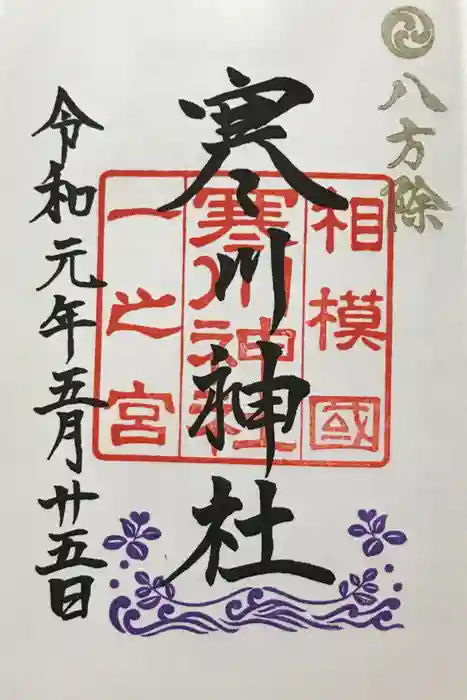 八方除
相模國
寒川神社
一之宮
寒川神社
令和元年五月廿五日